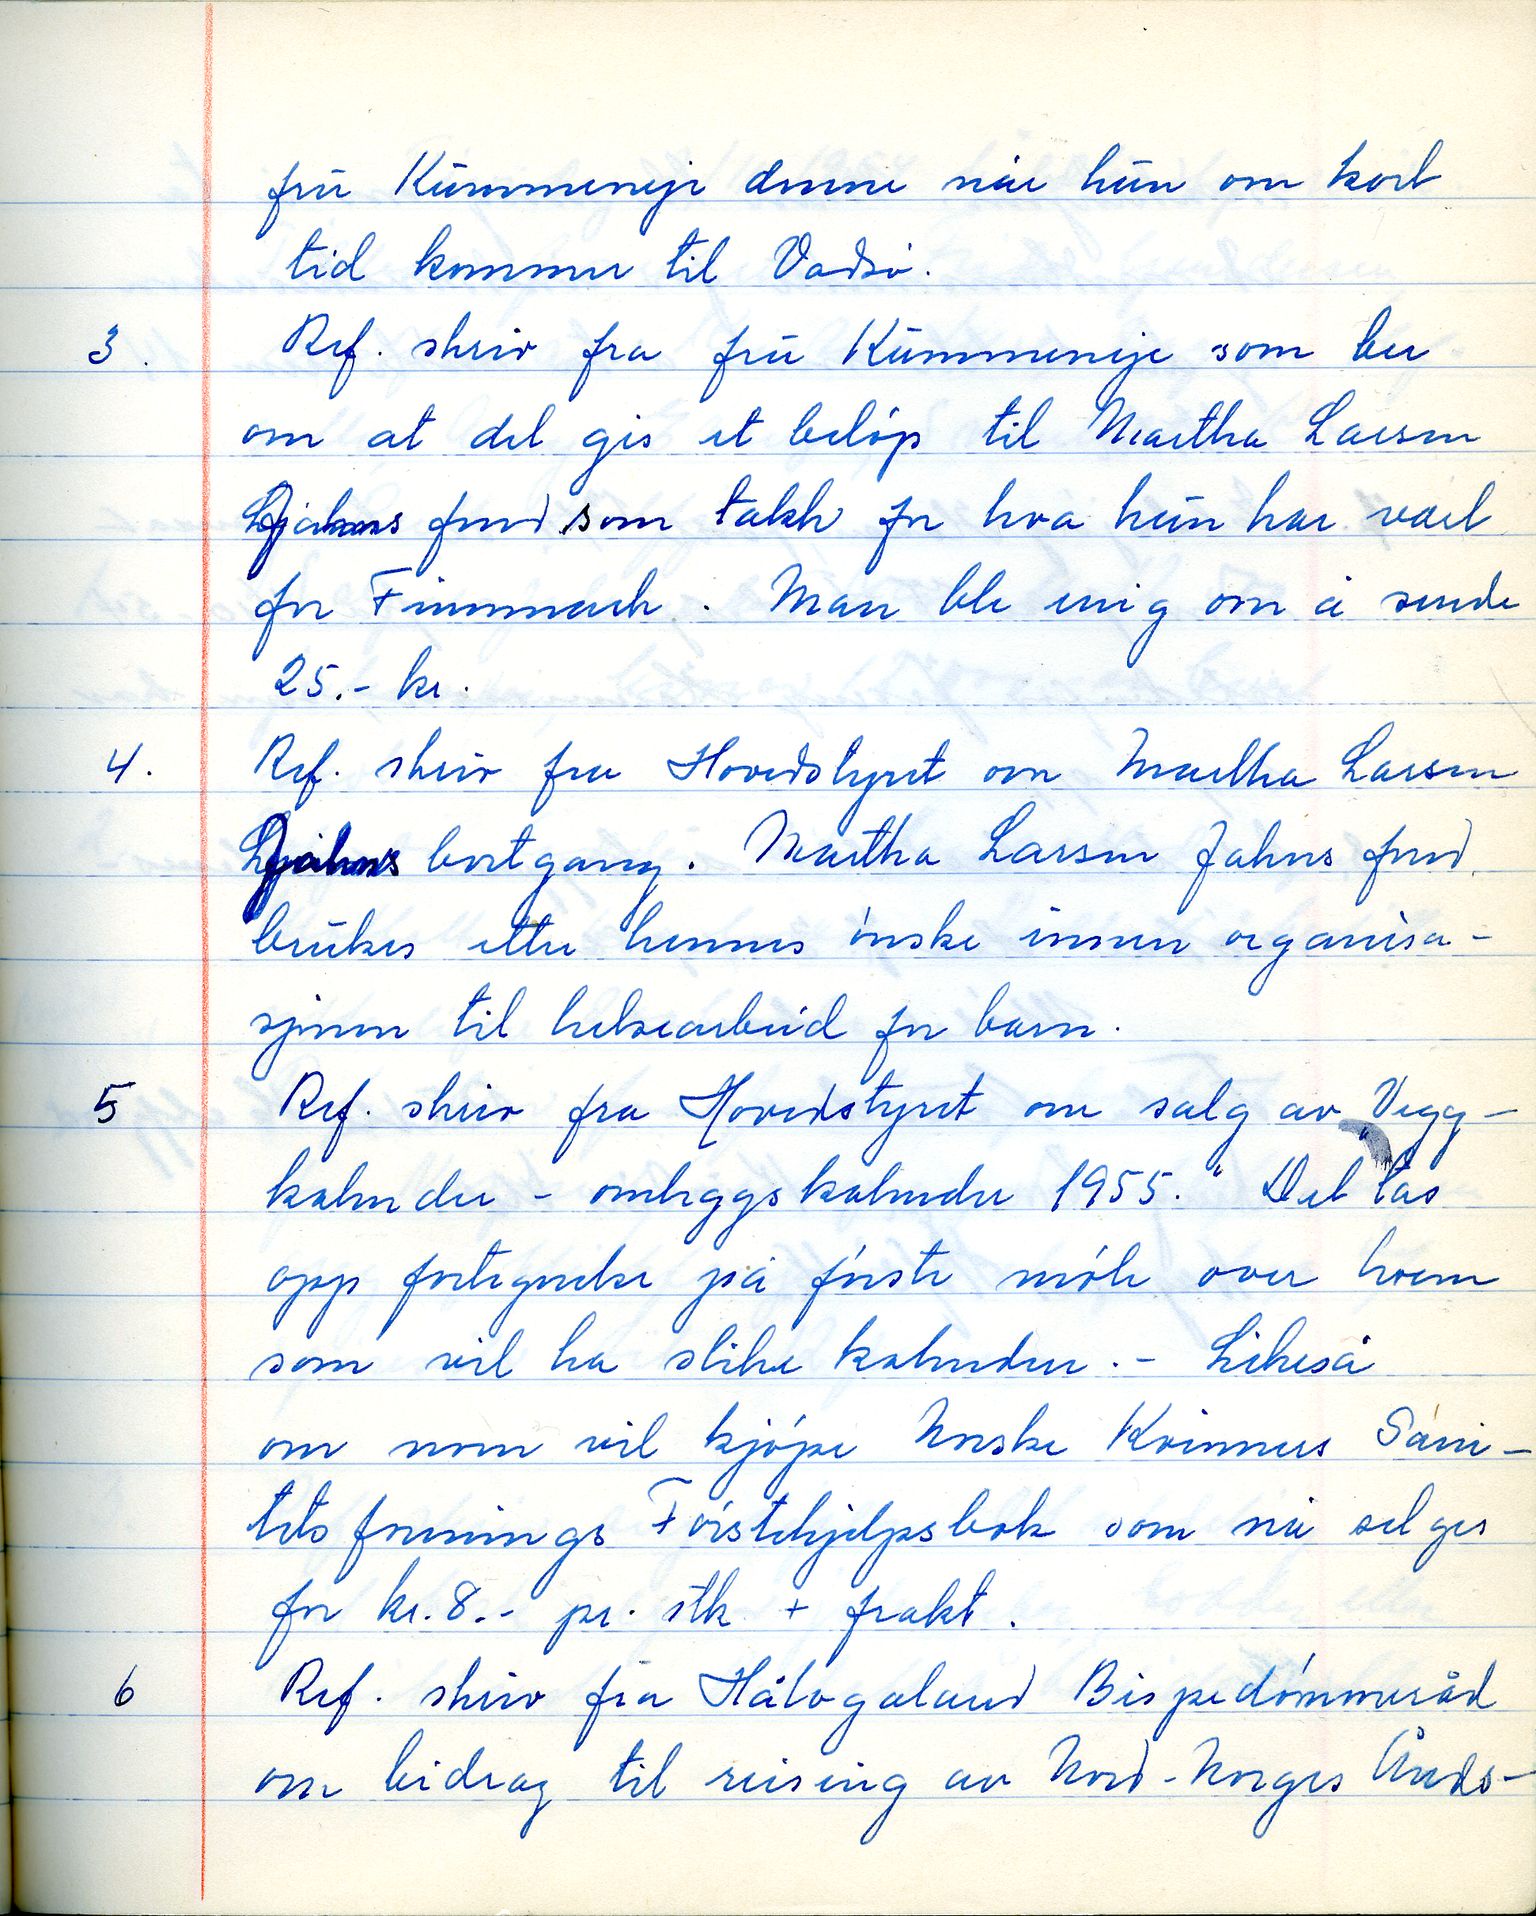 frū Kūmmeneje denne når hūn om kort
tid kommer til Vadsø.
3. Ref. skriv fra frū Kūmmeneje som ber
om at det gis et beløp til Martha Larsen
Jahns fond som takk for hva hūn har vært
for Finnmark. Man ble enig om å sende
25.- kr.
4. Ref. skriv fra Hovedstyret om Martha Larsen
Jahns bortgang. Martha Larsen Jahns fond
brūkes etter hennes ønske innen organisa-
sjonen til helsearbeid for barn.
5 Ref. skriv fra Hovedstyret om salg av „Vegg-
kalender - omleggskalender 1955.“ Det tas
opp fortegnelse på første møte over hvem
som vil ha slike kalendere.- Likeså
om noen vil kjøpe Norske Kvinners Sani-
tetsforenings Førstehjelpsbok som nå selges
for kr. 8.- pr. stk + frakt.
6 Ref. skriv fra Hålogaland Bispedømmeråd
om bidrag til reising av Nord-Norges Ånds-